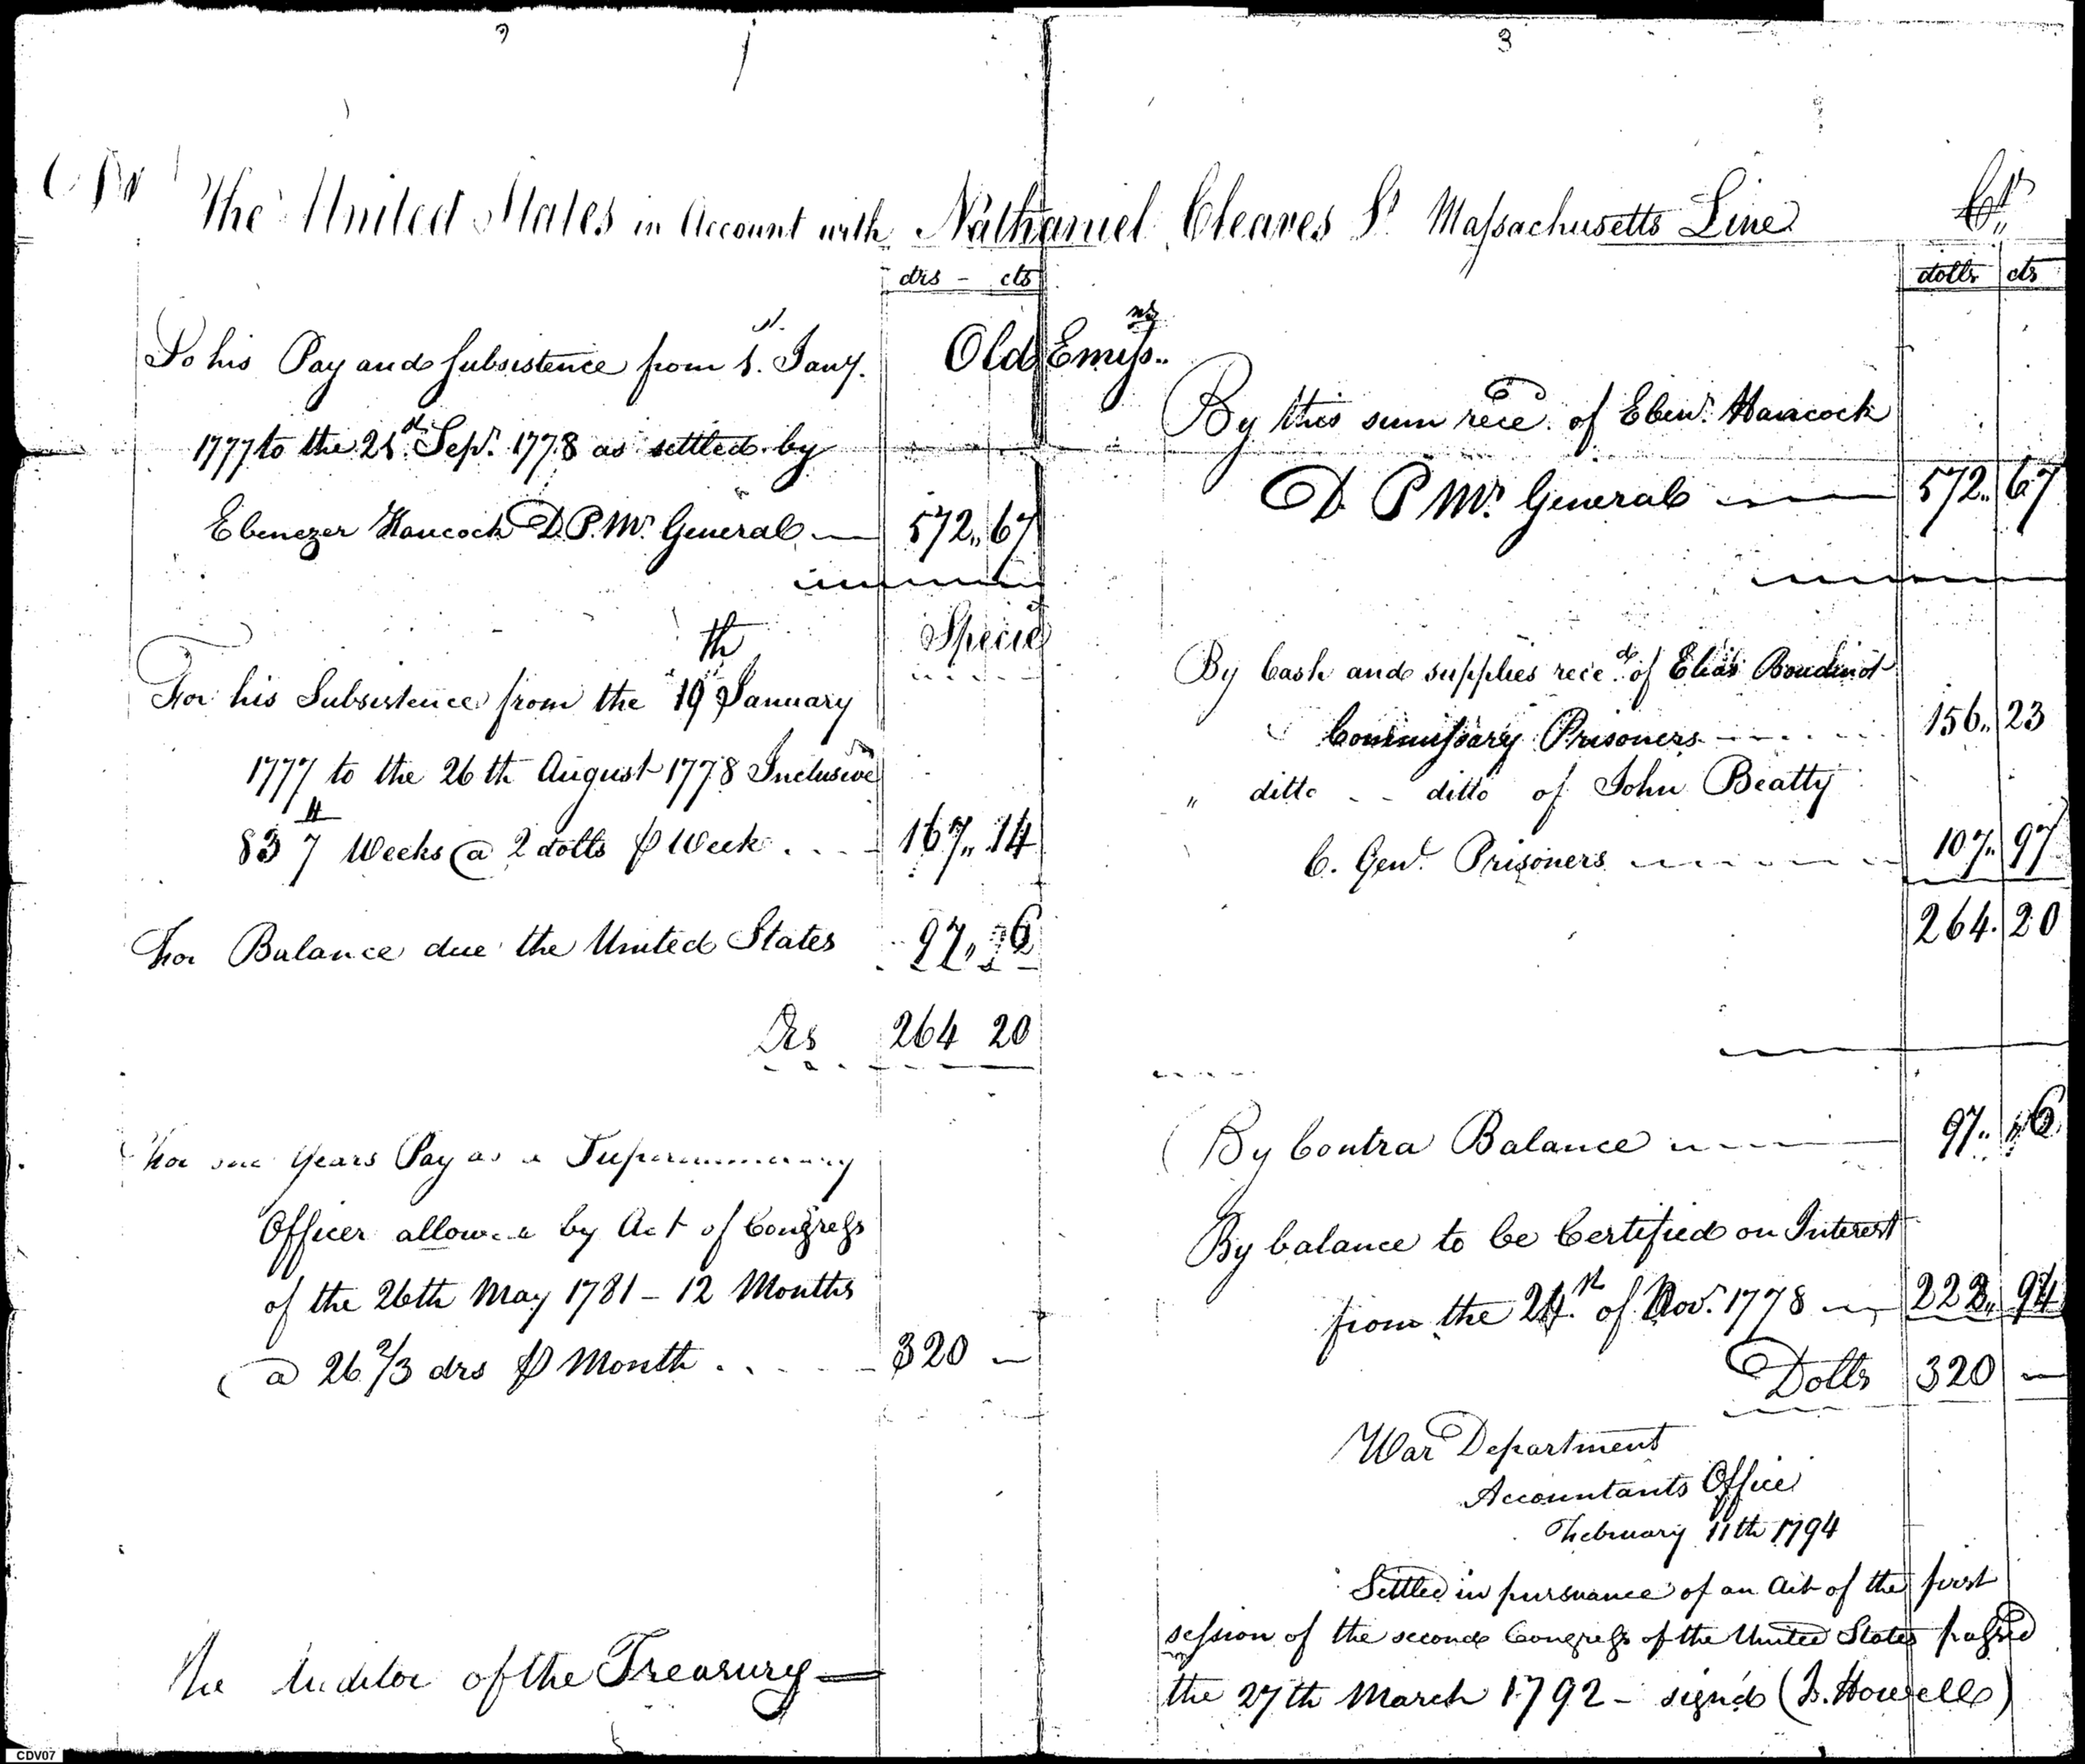 2
3
Dr The United States in Account with Nathaniel Cleaves Lt Massachusetts Line Cr
drs - cts
To his Pay and subsistence from 1st Jany.
Old Emissns
1777 to the 21st Sepr. 1778 as settled by
Ebenezer Hancock D. P. Mr General — 572.. 67
Specie
For his Subsistence from the 19th January
1777 to the 26th August 1778 Inclusive
83 4/7 Weeks @ 2 dolls p Week . . . - 167.. 14
For Balance due the United States 97..
Drs 264 20
For one Years Pay as a Supernumerary
Officer allowed by Act of Congress
of the 26th May 1781 - 12 Months
@ 26 2/3 drs p Month . . . . . 320 —
The Auditor of the Treasury —
dolls cts
By this sum recd. of Ebenr. Hancock
D. P Mr. General — 572.. 67
By Cash and supplies reced. of Elias Boudinot
Commissary Prisoners - - - - 156.. 23
" ditto - - ditto of John Beatty
C. Genl. Prisoners - - - - 107.. 97
264. 20
By Contra Balance — 97..
By balance to be Certified on Interest
from the of Nov. 1778 — 222.. 94
Dolls 320 —
War Department
Accountants Office
February 11th 1794
Settled in pursuance of an Act of the first
session of the second Congress of the United States passed
the 27th March 1792 - signd (J. Howell)
CDV07